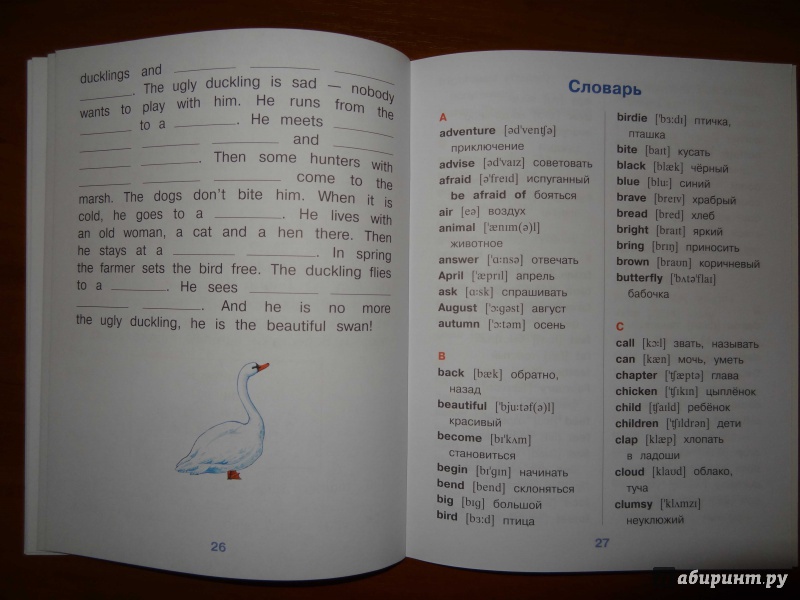 ducklings and ______ ______ ______
______. The ugly duckling is sad — nobody
wants to play with him. He runs from the
______ to a ______. He meets ______
______ ______ ______ and ______
______ ______. Then some hunters with
______ ______ ______ come to the
marsh. The dogs don't bite him. When it is
cold, he goes to a ______. He lives with
an old woman, a cat and a hen there. Then
he stays at a ______ ______. In spring
the farmer sets the bird free. The duckling flies
to a ______. He sees ______ ______
______ ______. And he is no more
the ugly duckling, he is the beautiful swan!
26
Словарь
A
adventure [əd'venʧə]
приключение
advise [əd'vaɪz] советовать
afraid [ə'freɪd] испуганный
be afraid of бояться
air [eə] воздух
animal ['ænɪm(ə)l]
животное
answer ['ɑ:nsə] отвечать
April ['æprɪl] апрель
ask [ɑ:sk] спрашивать
August ['ɔ:gəst] август
autumn ['ɔ:təm] осень
B
back [bæk] обратно,
назад
beautiful ['bju:təf(ə)l]
красивый
become [bɪ'kʌm]
становиться
begin [bɪ'gɪn] начинать
bend [bend] склоняться
big [bɪg] большой
bird [bɜ:d] птица
birdie ['bɜ:dɪ] птичка,
пташка
bite [baɪt] кусать
black [blæk] чёрный
blue [blu:] синий
brave [breɪv] храбрый
bread [bred] хлеб
bright [braɪt] яркий
bring [brɪŋ] приносить
brown [braʊn] коричневый
butterfly ['bʌtə'flaɪ]
бабочка
C
call [kɔ:l] звать, называть
can [kæn] мочь, уметь
chapter ['ʧæptə] глава
chicken ['ʧɪkɪn] цыплёнок
child [ʧaɪld] ребёнок
children ['ʧɪldrən] дети
clap [klæp] хлопать
в ладоши
cloud [klaʊd] облако,
туча
clumsy ['klʌmzɪ]
неуклюжий
27
абиринт.ру